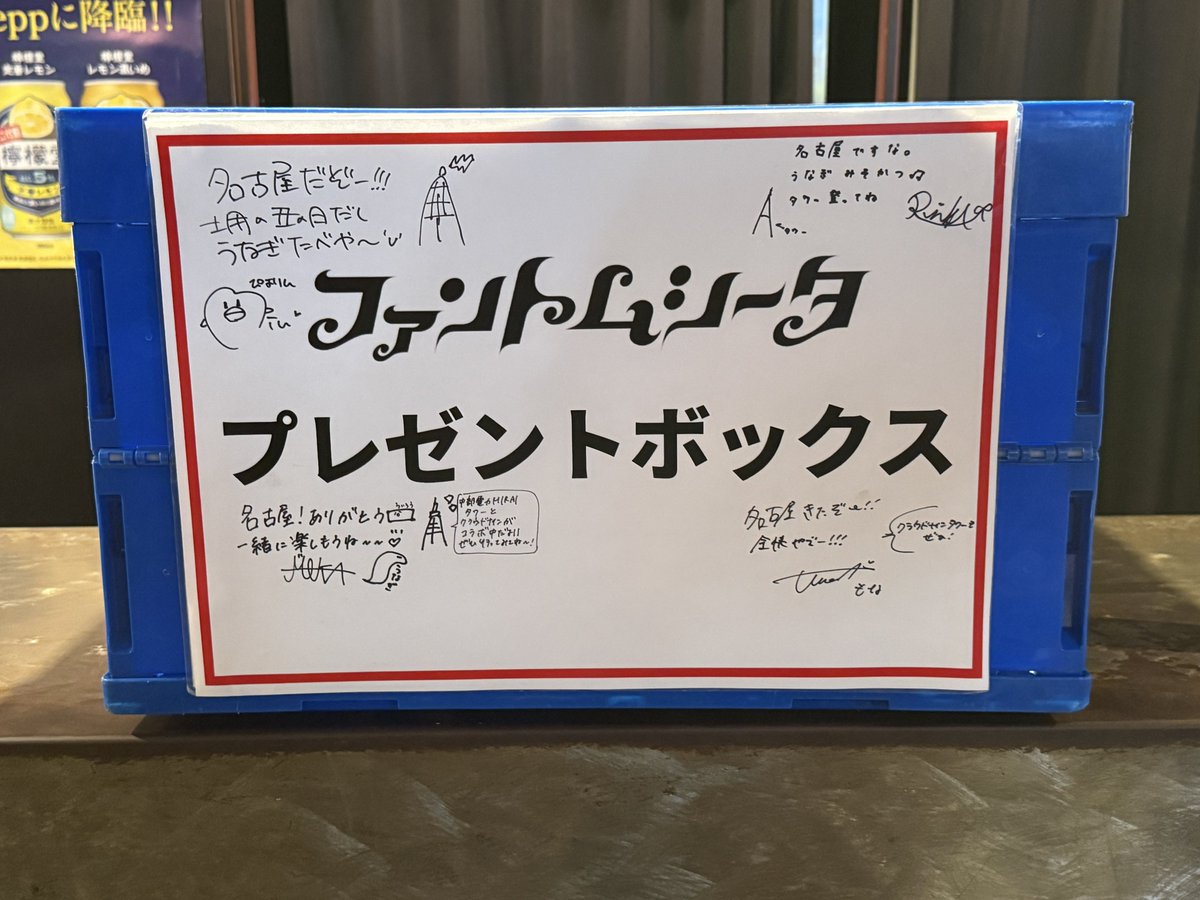 eppに降臨!!
檸檬堂
定番レモン
檸檬堂
レモン濃いめ
檸檬堂
5%
名古屋だぞー!!!
土用の丑の日だし
うなぎたべや〜
ぴよりん
名古屋ですな。
うなぎ みそかつ♫
タワー 登ってね
タワー
ファントムシータ
プレゼントボックス
名古屋!ありがとう
一緒に楽しもうね〜〜♡
MIUKA
中部電力MIRAI
タワーと
クラウドサインが
コラボ中だよ!!
ぜひ行ってみてね〜!
名古屋きたぞぉー!!
全倶やでー!!!
クラウドサインタワーも
ぜひ!
もな